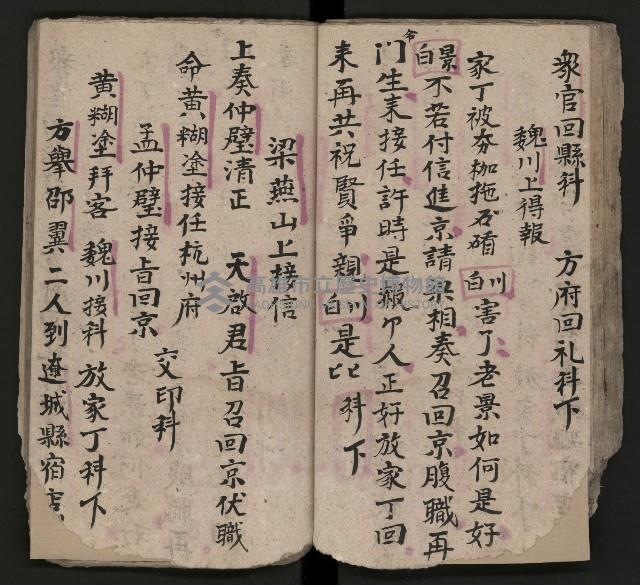 衆官回縣科　方府回礼科下
魏川上得報
家丁被夯枷拖石碃　白川　害了老景如何是好
白景　不若付信進京請梁相奏召回京腹職再
令
门生来接任許時是親卩人正好放家丁回
来再共祝賢爭親　白川　是比科下
梁燕山上接信
上奏仲璧清正　天啟君旨召回京伏職
命黄糊塗接任杭州府
孟仲璧接旨回京　交印科
黄糊塗拜客　魏川接科　放家丁科下
方擧邵翼二人到遼城縣宿
高雄市立歷史博物館